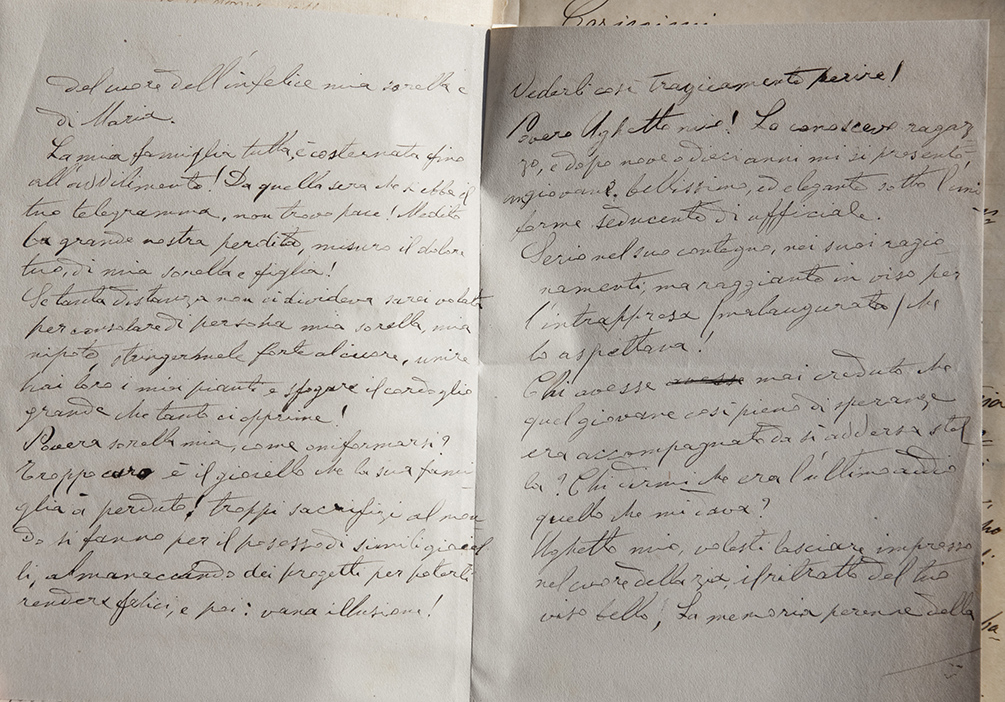 del cuore dell'infelice mia sorella e
di Maria.
La mia famiglia tutta, è costernata fino
all'avvilimento! Da quella sera che si ebbe il
tuo telegramma, non trovo pace! Medito
la grande nostra perdita, misuro il dolore
tuo, di mia sorella e figlia!
Se tanta distanza non ci divideva sarei volata
per consolare di persona mia sorella, mia
nipote, stringermele forte al cuore, unire
hai loro i miei pianti e sfogare il cordoglio
grande che tanto ci opprime!
Povera sorella mia, come oniformarsi?
Troppo caro è il gioiello che la sua fami
glia à perduto! troppi sacrifizi al mon
do si fanno per il possesso di simili gioiel
li, almanaccando dei progetti per poterli
rendere felici, e poi: vana illusione!
Vederli così tragicamente perire!
Povero Ughetto mio! Lo conoscevo ragaz
zo, e dopo nove o dieci anni mi si presentò,
un giovane bellissimo, ed elegante sotto l'uni
forme seducente di ufficiale.
Serio nel suo contegno, nei suoi ragio
namenti, ma raggiante in viso per
l'intrappresa (malaugurata) che
lo aspettava!
Chi avesse avesse mai creduto che
quel giovane così pieno di speranze
era accompagnato da sì addersa stel
la? Chi dirmi che era l'ultimo addio
quello che mi dava?
Ughetto mio, volesti lasciare impresso
nel cuore della zia, il ritratto del tuo
viso bello, La memoria perenne della
Carissimi